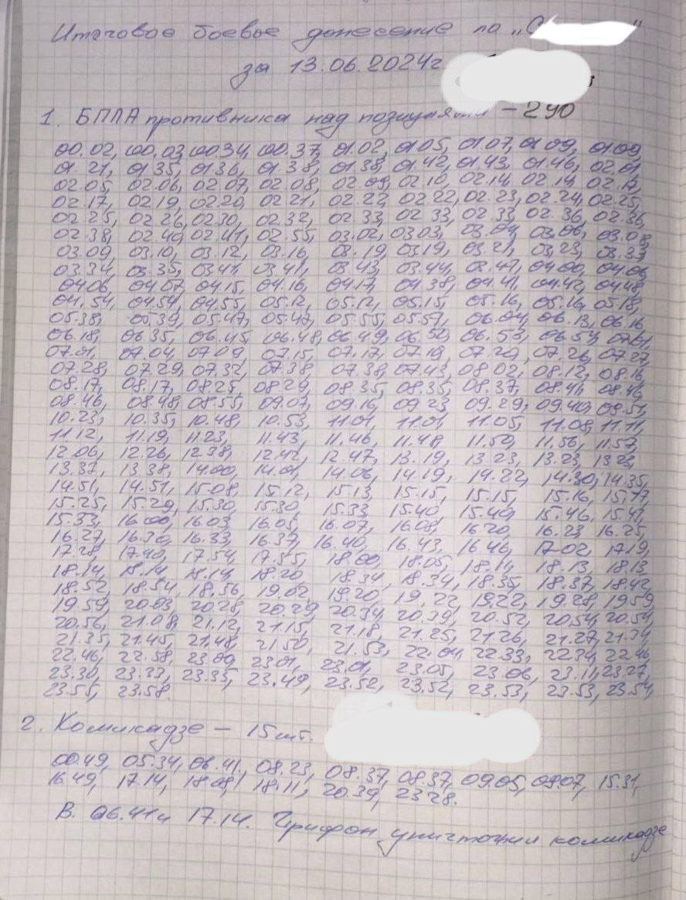 Итоговое боевое донесение по "О
за 13.06.2024г
1. БПЛА противника над позициями - 290
00.02, 00.03, 00.34, 00.37, 01.02, 01.05, 01.07, 01.09,
01.21, 01.35, 01.36, 01.38, 01.38, 01.42, 01.43, 01.46, 02.01
02.05, 02.06, 02.07, 02.08, 02.09, 02.10, 02.14, 02.14, 02.17
02.17, 02.19, 02.20, 02.21, 02.22, 02.22, 02.23, 02.24, 02.25,
02.25, 02.26, 02.30, 02.32, 02.33, 02.33, 02.33, 02.36,
02.38, 02.40, 02.41, 02.55, 03.02, 03.03, 03.04, 03.06, 03.08
03.09, 03.10, 03.12, 03.16, 03.19, 03.19, 03.21, 03.23, 03.33
03.34, 03.35, 03.41, 03.41, 03.43, 03.44, 03.47, 04.00,
04.06, 04.07, 04.15, 04.16, 04.17, 04.38, 04.41, 04.42, 04.48
04.54, 04.54, 04.55, 05.12, 05.12, 05.15, 05.16, 05.16, 05.18,
05.38, 05.39, 05.47, 05.47, 05.55, 05.57, 06.04, 06.13, 06.16
06.18, 06.35, 06.45, 06.48, 06.49, 06.50, 06.53, 06.57,
07.01, 07.04, 07.09, 07.15, 07.17, 07.19, 07.20, 07.26, 07.27
07.28, 07.29, 07.32, 07.38, 07.38, 07.43, 08.02, 08.12, 08.16
08.17, 08.17, 08.25, 08.29, 08.35, 08.35, 08.37, 08.41,
08.46, 08.48, 08.55, 09.07, 09.16, 09.23, 09.29, 09.40, 09.51
10.23, 10.35, 10.48, 10.53, 11.01, 11.01, 11.05, 11.08, 11.11,
11.12, 11.19, 11.23, 11.43, 11.46, 11.48, 11.50, 11.56, 11.57,
12.06, 12.26, 12.38, 12.42, 12.47, 13.19, 13.23, 13.23,
13.37, 13.38, 14.00, 14.01, 14.06, 14.19, 14.22, 14.30, 14.35,
14.51, 14.51, 15.08, 15.12, 15.13, 15.15, 15.15, 15.16, 15.17
15.25, 15.29, 15.30, 15.30, 15.33, 15.40, 15.40, 15.46, 15.47,
15.53, 16.00, 16.03, 16.05, 16.07, 16.08, 16.20, 16.23, 16.25,
16.27, 16.30, 16.33, 16.37, 16.40, 16.43, 16.46, 17.02, 17.19,
17.28, 17.40, 17.54, 17.55, 18.00, 18.05, 18.11, 18.13, 18.13
18.14, 18.14, 18.19, 18.20, 18.34, 18.34, 18.35, 18.37, 18.42,
18.52, 18.54, 18.56, 19.02, 19.20, 19.22, 19.22, 19.28, 19.59
19.59, 20.03, 20.28, 20.29, 20.34, 20.39, 20.52, 20.54, 20.54,
20.56, 21.08, 21.12, 21.15, 21.18, 21.25, 21.26, 21.27, 21.34
21.35, 21.45, 21.48, 21.50, 21.53, 22.04, 22.33, 22.34, 22.46
22.46, 22.58, 23.00, 23.01, 23.01, 23.05, 23.06, 23.11, 23.27,
23.30, 23.33, 23.35, 23.49, 23.52, 23.52, 23.53, 23.53, 23.54,
23.55, 23.58.
2. Комикадзе - 15шт.
00.49, 05.34, 06.41, 08.23, 08.37, 08.37, 09.05, 09.07, 15.31,
16.49, 17.14, 18.08, 18.11, 20.39, 23.28.
В. 06.41 и 17.14. Грифон уничтожил комикадзе